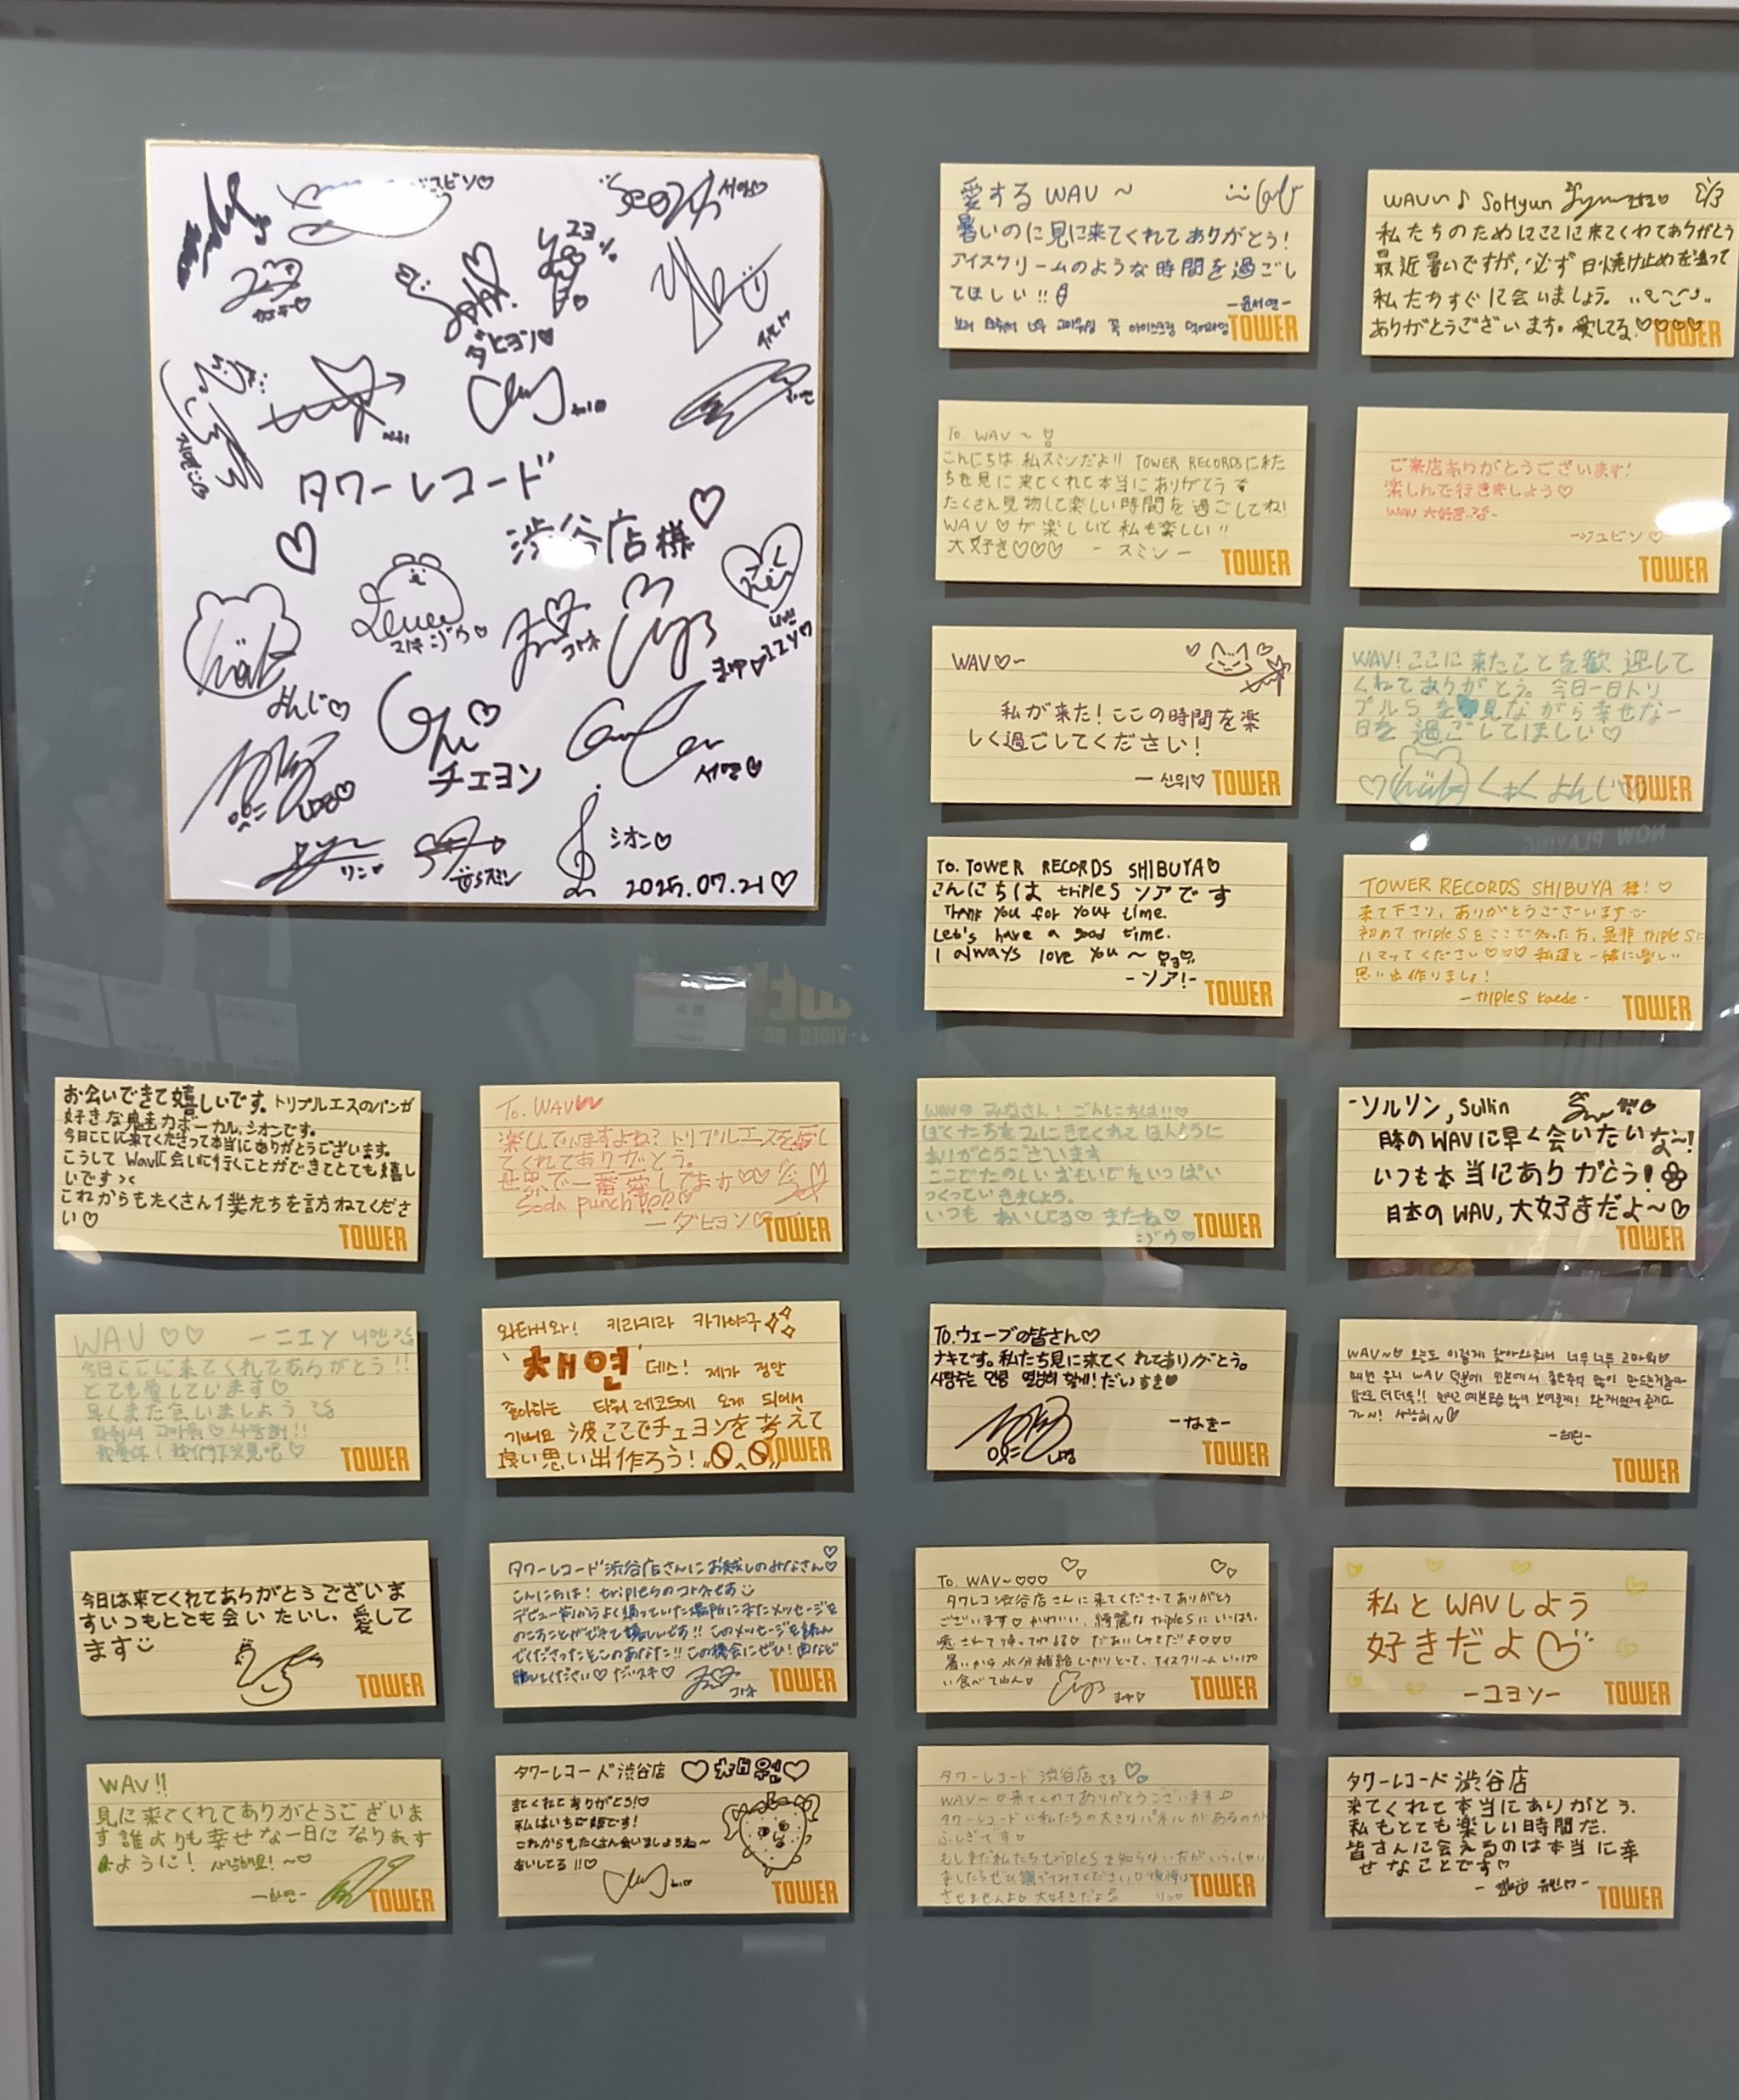 ダヒヨン♡
タワーレコード
渋谷店様♡
コトネ
まゆ♡
よんじ♡
チェヨン
서연♡
リン♡
スミン
シオン♡
2025.07.21♡
愛する WAV ~
暑いのに見に来てくれてありがとう!
アイスクリームのような時間を過ごし
てほしい!!
-윤서연-
TOWER
WAV~♪ SoHyun
私たちのためにここに来てくれてありがとう
最近暑いですが、必ず日焼け止めを塗って
私たちすぐに会いましょう。
ありがとうございます。愛してる♡♡♡♡
TOWER
To. WAV ~
こんにちは 私スミンだよ!! TOWER RECORDSに私た
ちを見に来てくれて本当にありがとう
たくさん見物して楽しい時間を過ごしてね!
WAV♡が楽しいと私も楽しい!!
大好き♡♡♡ - スミン -
TOWER
ご来店ありがとうございます!
楽しんで行きましょう♡
WAV 大好き
-ジユビン♡-
TOWER
WAV♡~
私が来た!ここの時間を楽
しく過ごしてください!
- 신위♡
TOWER
WAV!ここに来たことを歓迎して
くれてありがとう。今日一日トリ
プルSを見ながら幸せな一
日を過ごしてほしい♡
くぁく よんじ♡
TOWER
To. TOWER RECORDS SHIBUYA♡
こんにちは tripleS ソアです
Thank you for your time.
Let's have a good time.
I always love you ~
- ソア!-
TOWER
TOWER RECORDS SHIBUYA 様!♡
来て下さり、ありがとうございます
初めて tripleSをここで知った方、是非 tripleSに
ハマってください♡♡♡ 私達と一緒に楽しい
思い出作りましょ!
- tripleS Kaede -
TOWER
お会いできて嬉しいです。トリプルエスのパンが
好きな鬼走カボーカル、シオンです。
今日ここに来てくださって本当にありがとうございます。
こうして Wavに会いに行くことができてとても嬉し
いです><
これからもたくさん僕たちを訪ねてくださ
い♡
TOWER
To. WAV
楽しんでいますよね?トリプルエスを愛し
てくれてありがとう。
世界で一番愛してます♡♡
Soda punch
- ダヒヨン♡-
TOWER
WAVの みなさん! こんにちは!!♡
ぼくたちをみにきてくれて ほんとうに
ありがとうございます
ここでたのしいおもいでをいっぱい
つくっていきましょう。
いつも あいしてる♡ またね♡
ニジウ♡
TOWER
-ソルリン, Sullin
日本のWAVに早く会いたいな~!
いつも本当にありがとう!
日本のWAV,大好きだよ~♡
TOWER
WAV♡♡ -ニエン
今日ここに来てくれてありがとう!!
とても愛しています♡
早くまた会いましょう
TOWER
와타시와! 키라키라 카가야쿠
채연 데스! 제가 정말
좋아하는 타워레코드에 오게 되어서
기뻐요 波ここでチェヨンを考えて
良い思い出作ろう!
TOWER
To.ウェーブの皆さん♡
ナキです。私たち見に来てくれてありがとう。
だいすき♥
-なき-
TOWER
-혜린-
TOWER
今日は来てくれてありがとうございま
すいつもとても会いたいし、愛して
ます
TOWER
タワーレコード渋谷店さんにお越しのみなさん♡
こんにちは! tripleSのコトネです
デビュー前からよく通っていた場所にまたメッセージを
のこすことができて嬉しいです!! このメッセージを読ん
でくださったそこのあなた!! この機会にぜひ! 曲など
聴いてください♡ だいスキ♡
コトネ
TOWER
To. WAV~♡♡♡
タワレコ渋谷店さんに来てくださってありがとう
ございます♡ かわいい、綺麗な tripleSにいっぱい
癒されて帰ってねる♡ だぁいしゅきだよ♡♡♡
暑いから水分補給しっかりとって、アイスクリームいっぱ
い食べてねん♡
まゆ♡
TOWER
私とWAVしよう
好きだよ
-ユヨン-
TOWER
WAV!!
見に来てくれてありがとうございま
す誰よりも幸せな一日になります
ように! 사랑해요! ~♡
TOWER
タワーレコード渋谷店 ♡채원♡
きてくれて ありがとう!♡
私はいちご姫です!
これからもたくさん会いましょうね~
あいしてる!!♡
TOWER
タワーレコード 渋谷店さま♡
WAV~♡来てくれてありがとうございます♡
タワーレコードに私たちの大きなパネルがあるのが
ふしぎです♡
もしまだ私たちtripleSを知らない方がいらっしゃい
ましたらぜひ調べてみてください♡後悔は
させませんよ♡ 大好きだよ
リン♡
TOWER
タワーレコード 渋谷店
来てくれて本当にありがとう.
私もとても楽しい時間だ.
皆さんに会えるのは本当に幸
せなことです♡
TOWER